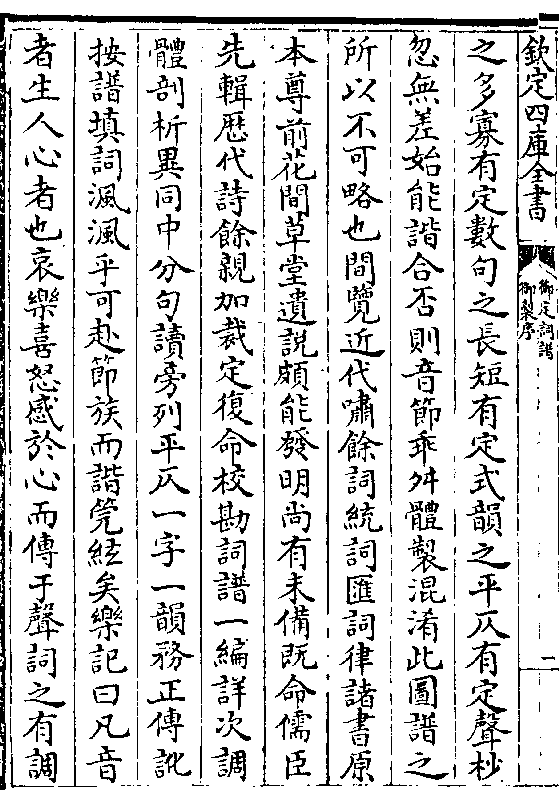 欽定四庫全書
御定詞譜
御製序
一
之多寡有定數句之長短有定式韻之平仄有定聲杪
忽無差始能諧合否則音節乖舛體製混淆此圖譜之
所以不可略也間覽近代嘯餘詞統詞匯詞律諸書原
本尊前花間草堂遺說頗能發明尚有未備既命儒臣
先輯歴代詩餘親加裁定復命校勘詞譜一編詳次調
體剖析異同中分句讀旁列平仄一字一韻務正傳訛
按譜填詞渢渢乎可赴節族而諧筦絃矣樂記曰凡音
者生人心者也哀樂喜怒感於心而傳于聲詞之有調